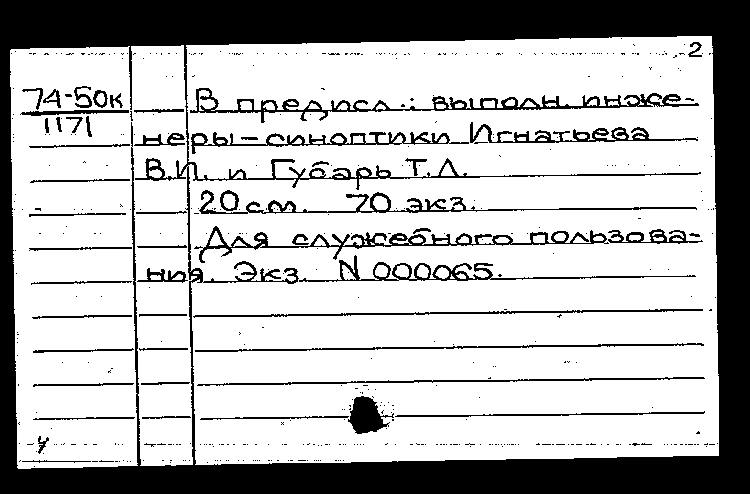 2
74-50к
1171
В предисл.: выполн. инже-
неры-синоптики Игнатьева
В.И. и Губарь Т.Л.
20 см. 70 экз.
Для служебного пользова-
ния. Экз. N 000065.
ч